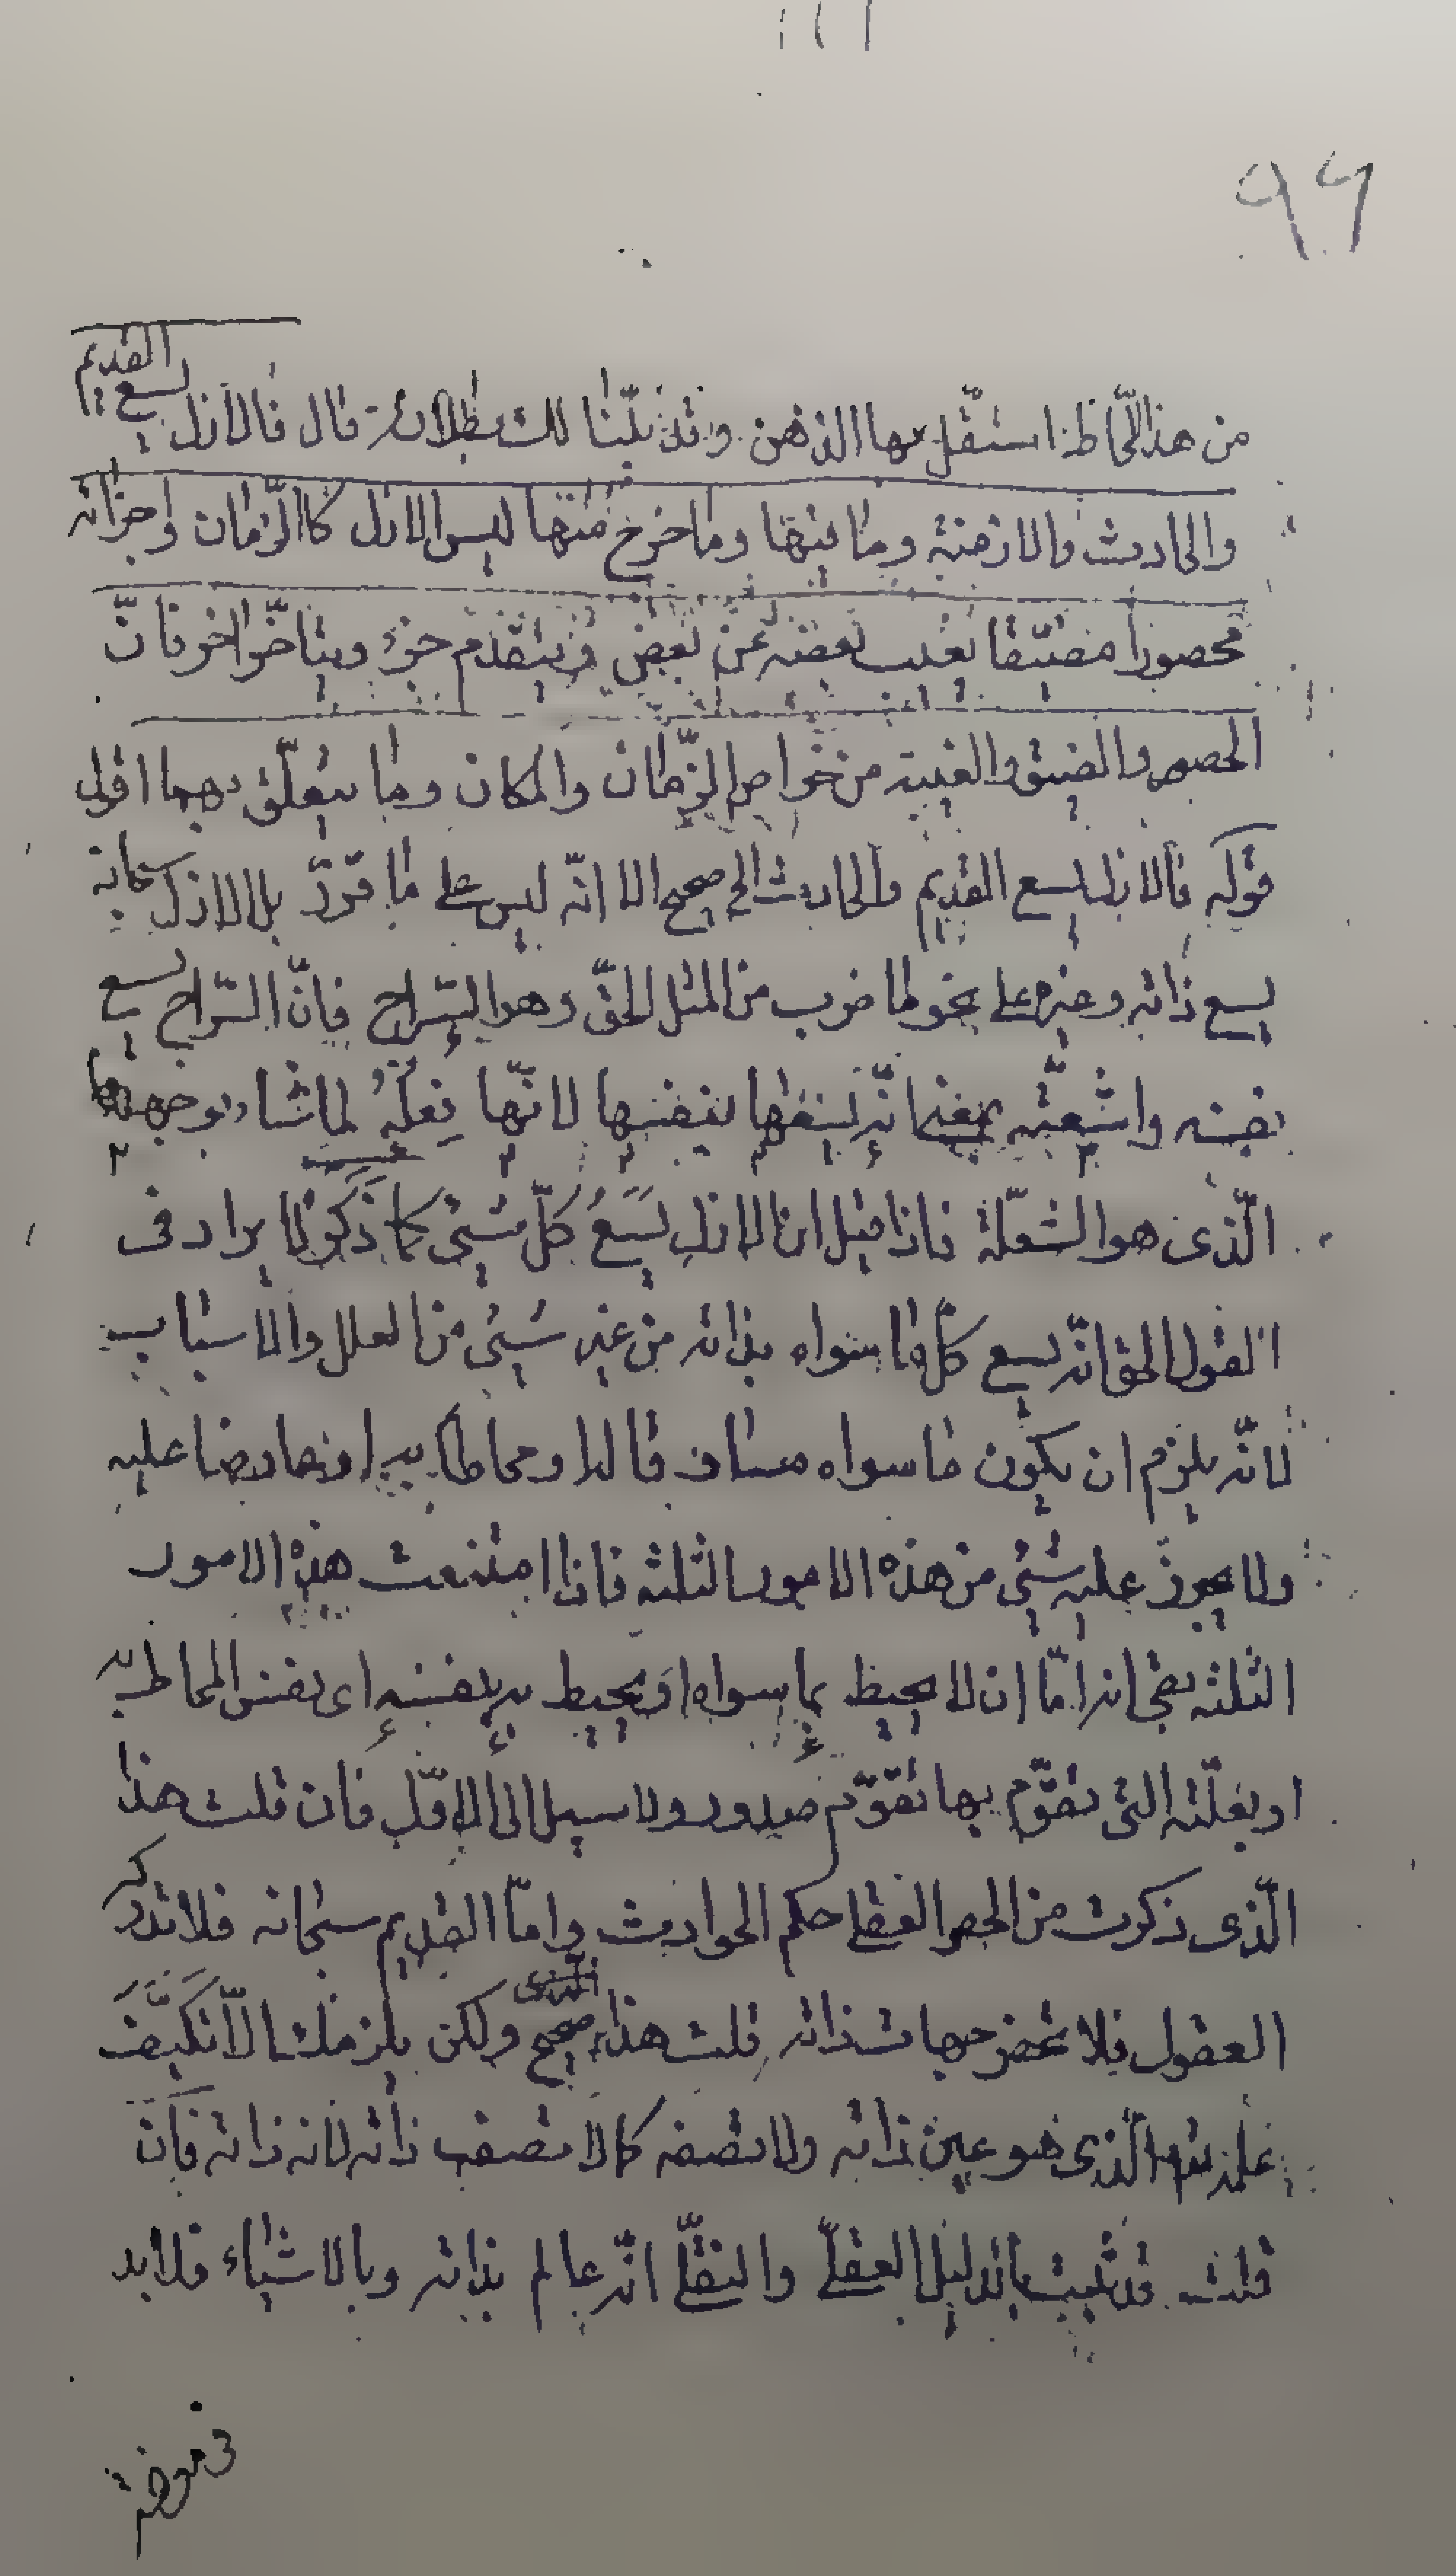 ٩٦
من هذا اللّحاظ استقلّ بها الذهن وقد بيّنا لك بطلانه قال فالازل يسع القديم
والحادث والازمنة وما بينها وما خرج منها ليس الازل كالزّمان واجزائه
محصورا مضيّقا يغيب بعضه عن بعض ويتقدم جزء ويتاخّر اخر فانّ
الحصر والضيق والغيبة من خواص الزّمان والمكان وما يتعلّق بهما اقول
قوله فالازل يسع القديم والحادث الخ صحيح الا انّه ليس على ما قرّر بل الازل سبحانه
يسع ذاته وغيره على نحو ما ضرب من المثل الحقّ وهو السّراج فانّ السّراج يسع
نفسه واشعّته بمعنى انّه يسعها بنفسها لانّها فِعْلِهِ لما شاء بوجهه
الّذى هو الشعلة فاذا قيل ان الازل يَسَعُ كلّ شىء كما ذَكَرَ لا يراد فى
القول الحق انّه يسع كلّ ما سواه بذاته من غير شىء من العلل والاسباب
لانّه يلزم ان يكون ما سواه مساوقا له او محاطا به او عارضا عليه
ولا يجوز عليه شىء من هذه الامور الثلثة فاذا امتنعت هذه الامور
الثلثة بقى انه امّا ان لا يحيط بما سواه او يحيط به بنفسه اى بنفس المحاط به
او بعلّته التى تقوّم بها تقوّم صدور ولا سبيل الى الاوّل فان قلت هذا
الّذى ذكرت من الحصر العقلى حكم الحوادث وامّا القديم سبحانه فلا تدركه
العقول فلا تحصر جهات ذاته قلت هذا الّذى صحيح ولكن يلزمك الّا تكيّفَ
علمه الّذى هو عين ذاته ولا تصفه كما لا تصف ذاته لانه ذاته فان
قلت قد ثبت بالدليل العقلّى والنقلّى انّه عالم بذاته وبالاشياء فلا بد